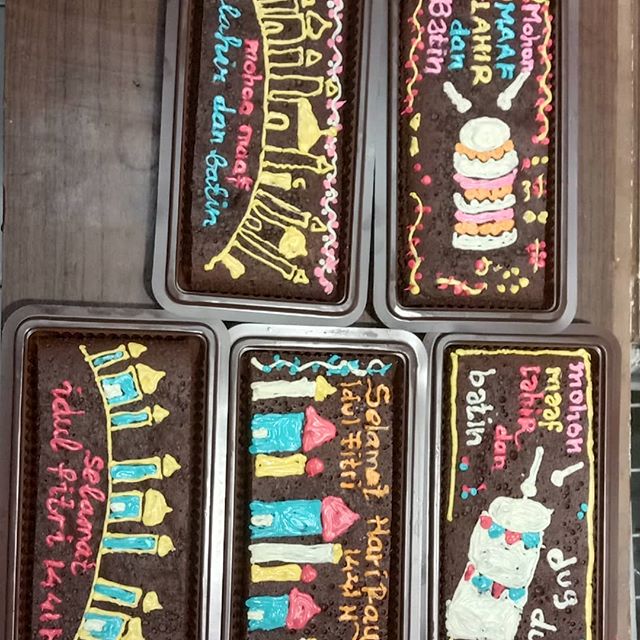 mohon maaf
lahir dan batin
Mohon
MAAF
LAHIR
dan
Batin
selamat
idul fitri 1441 H
Selamat Hari Raya
Idul Fitri 1441 H
mohon
maaf
LAHIR dan
batin
dug